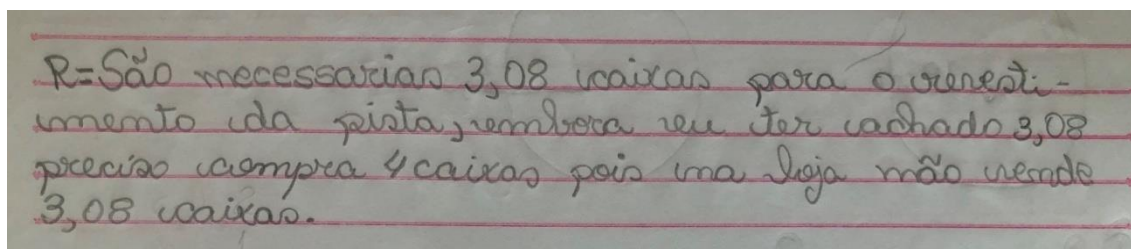 R=São necessarias 3,08 caixas para o revesti-
mento da pista, embora eu ter achado 3,08
preciso compra 4 caixas pois na loja não vende
3,08 caixas.